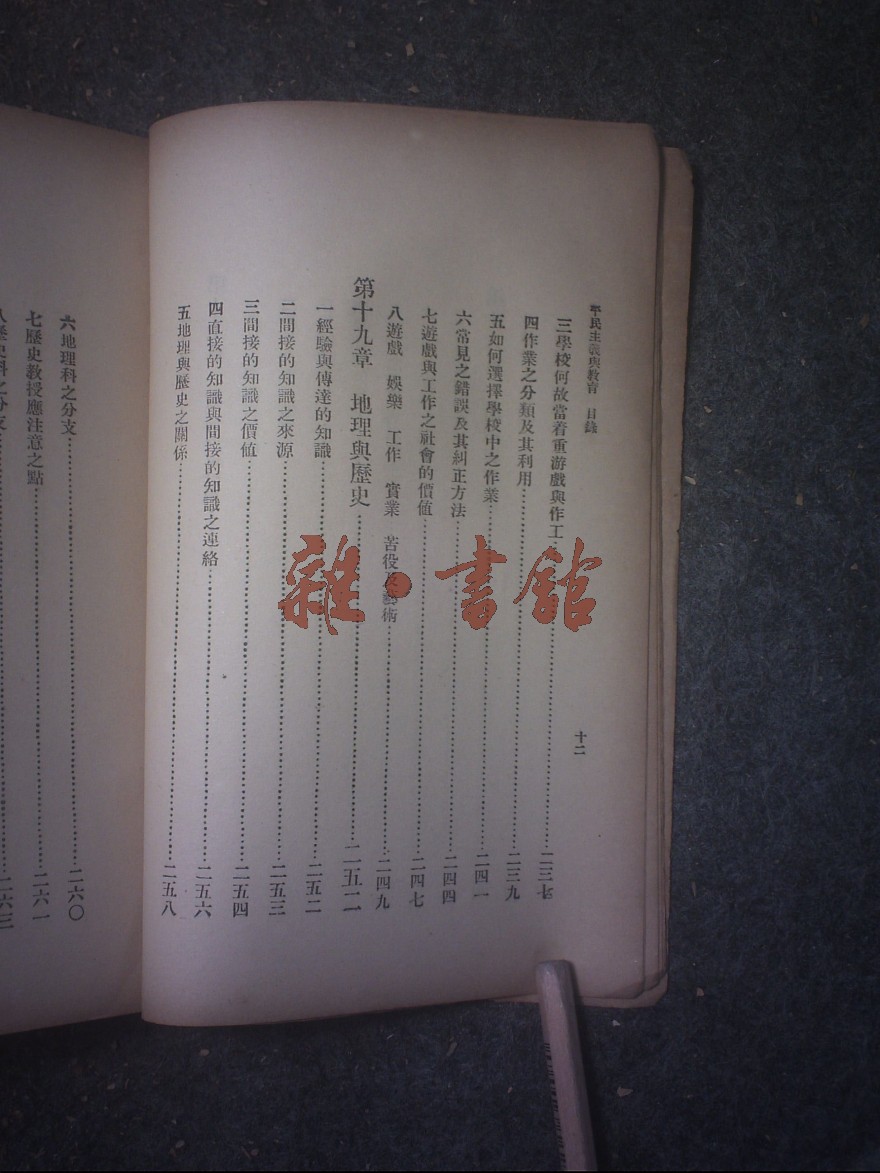 平民主義與教育 目錄
十二
三學校何故當着重游戲與作工……二三
四作業之分類及其利用……二三九
五如何選擇學校中之作業……二四一
六常見之錯誤及其糾正方法……二四四
七遊戲與工作之社會的價值……二四七
八遊戲 娛樂 工作 實業 苦役及藝術……二四九
第十九章 地理與歷史……二五二
一經驗與傳達的知識……二五二
二間接的知識之來源……二五三
三間接的知識之價值……二五四
四直接的知識與間接的知識之連絡……二五六
五地理與歷史之關係……二五八
六地理科之分支……二六〇
七歷史教授應注意之點……二六一
八歷史科之分支……二六三
雜·書館